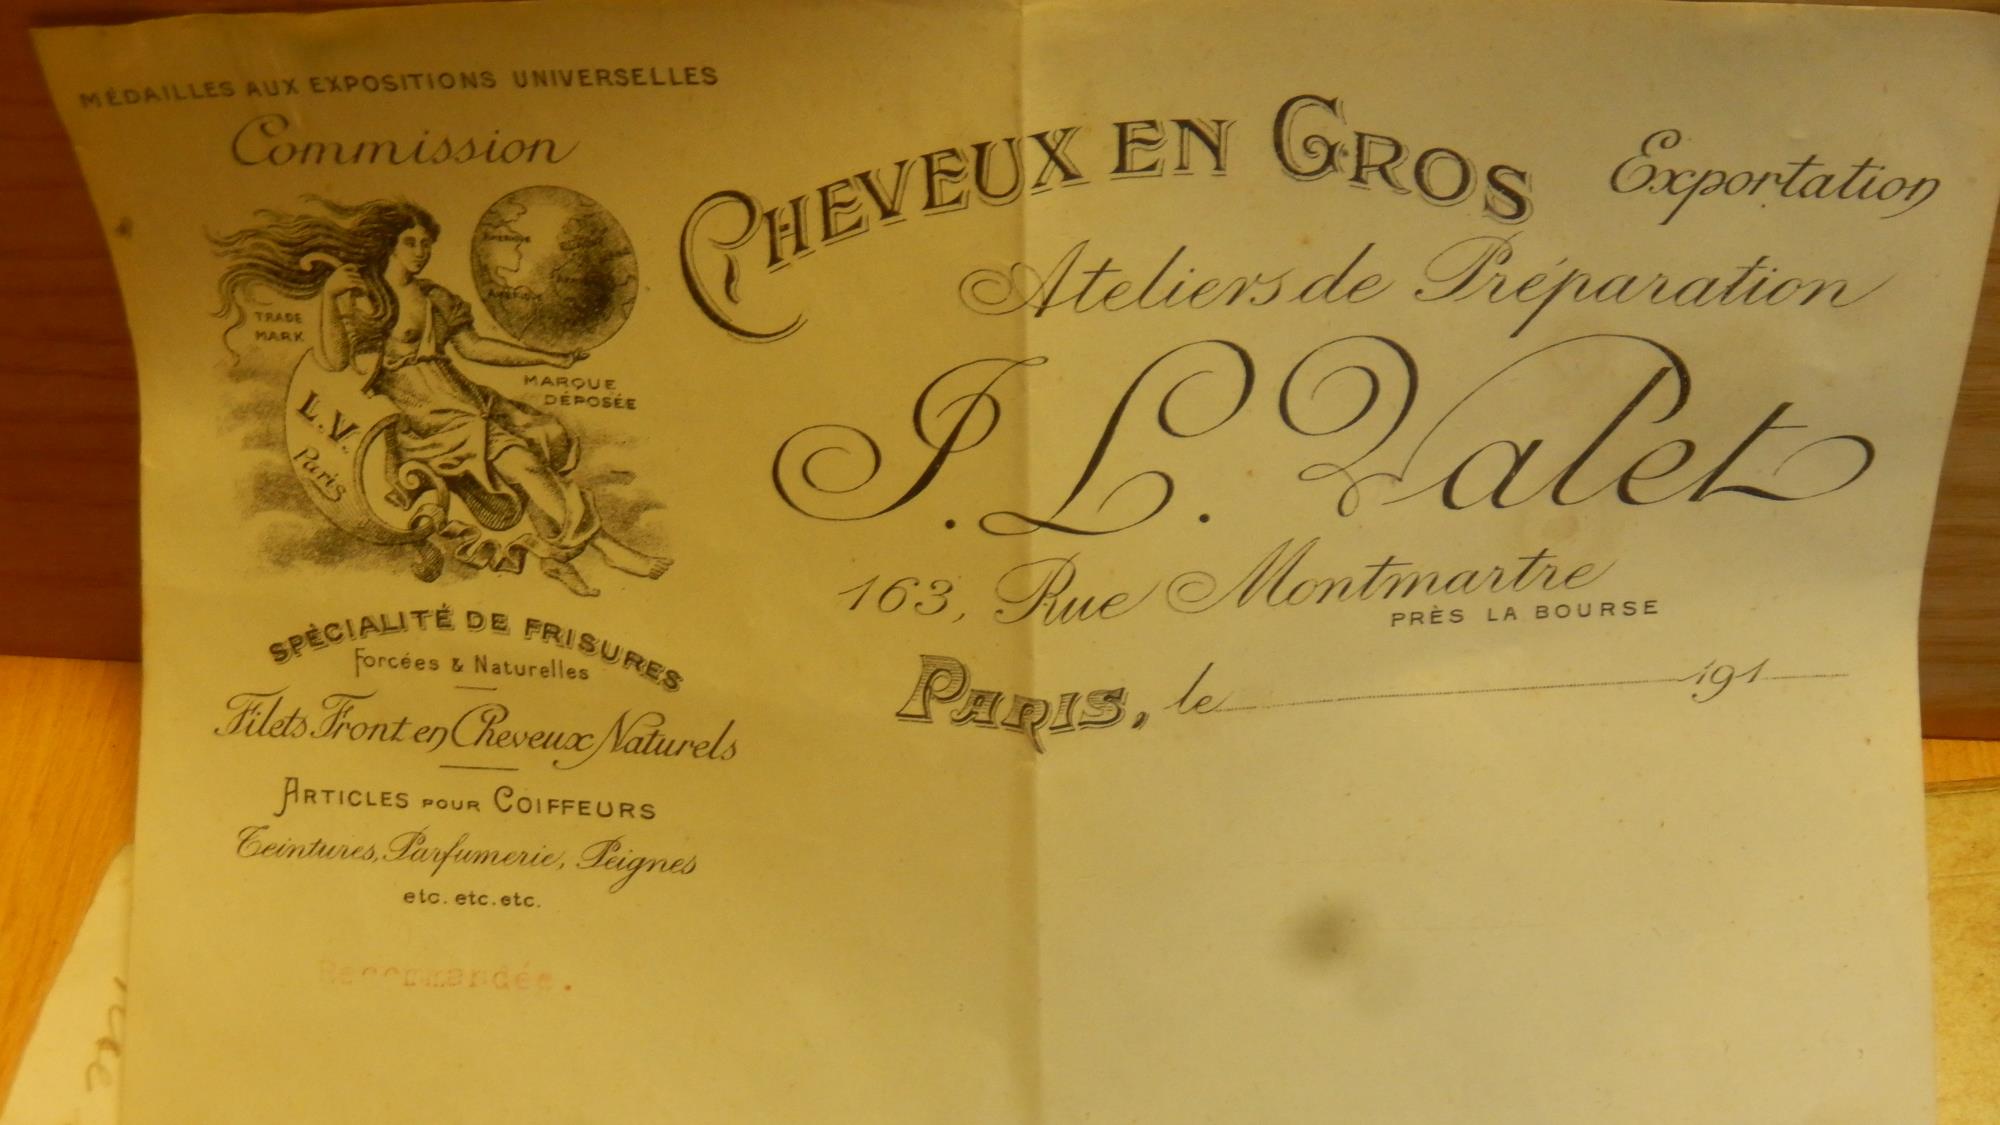 MÉDAILLES AUX EXPOSITIONS UNIVERSELLES
Commission
TRADE
MARK
L.V.
Paris
MARQUE
DÉPOSÉE
SPÉCIALITÉ DE FRISURES
Forcées & Naturelles
Filets Front en Cheveux Naturels
ARTICLES POUR COIFFEURS
Teintures, Parfumerie, Peignes
etc. etc. etc.
Recommandée.
CHEVEUX EN GROS
Exportation
Ateliers de Préparation
J. L. Valet
163, Rue Montmartre
PRÈS LA BOURSE
PARIS, le 191